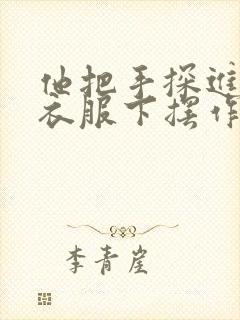 他把手探进
衣服下摆作
李青崖